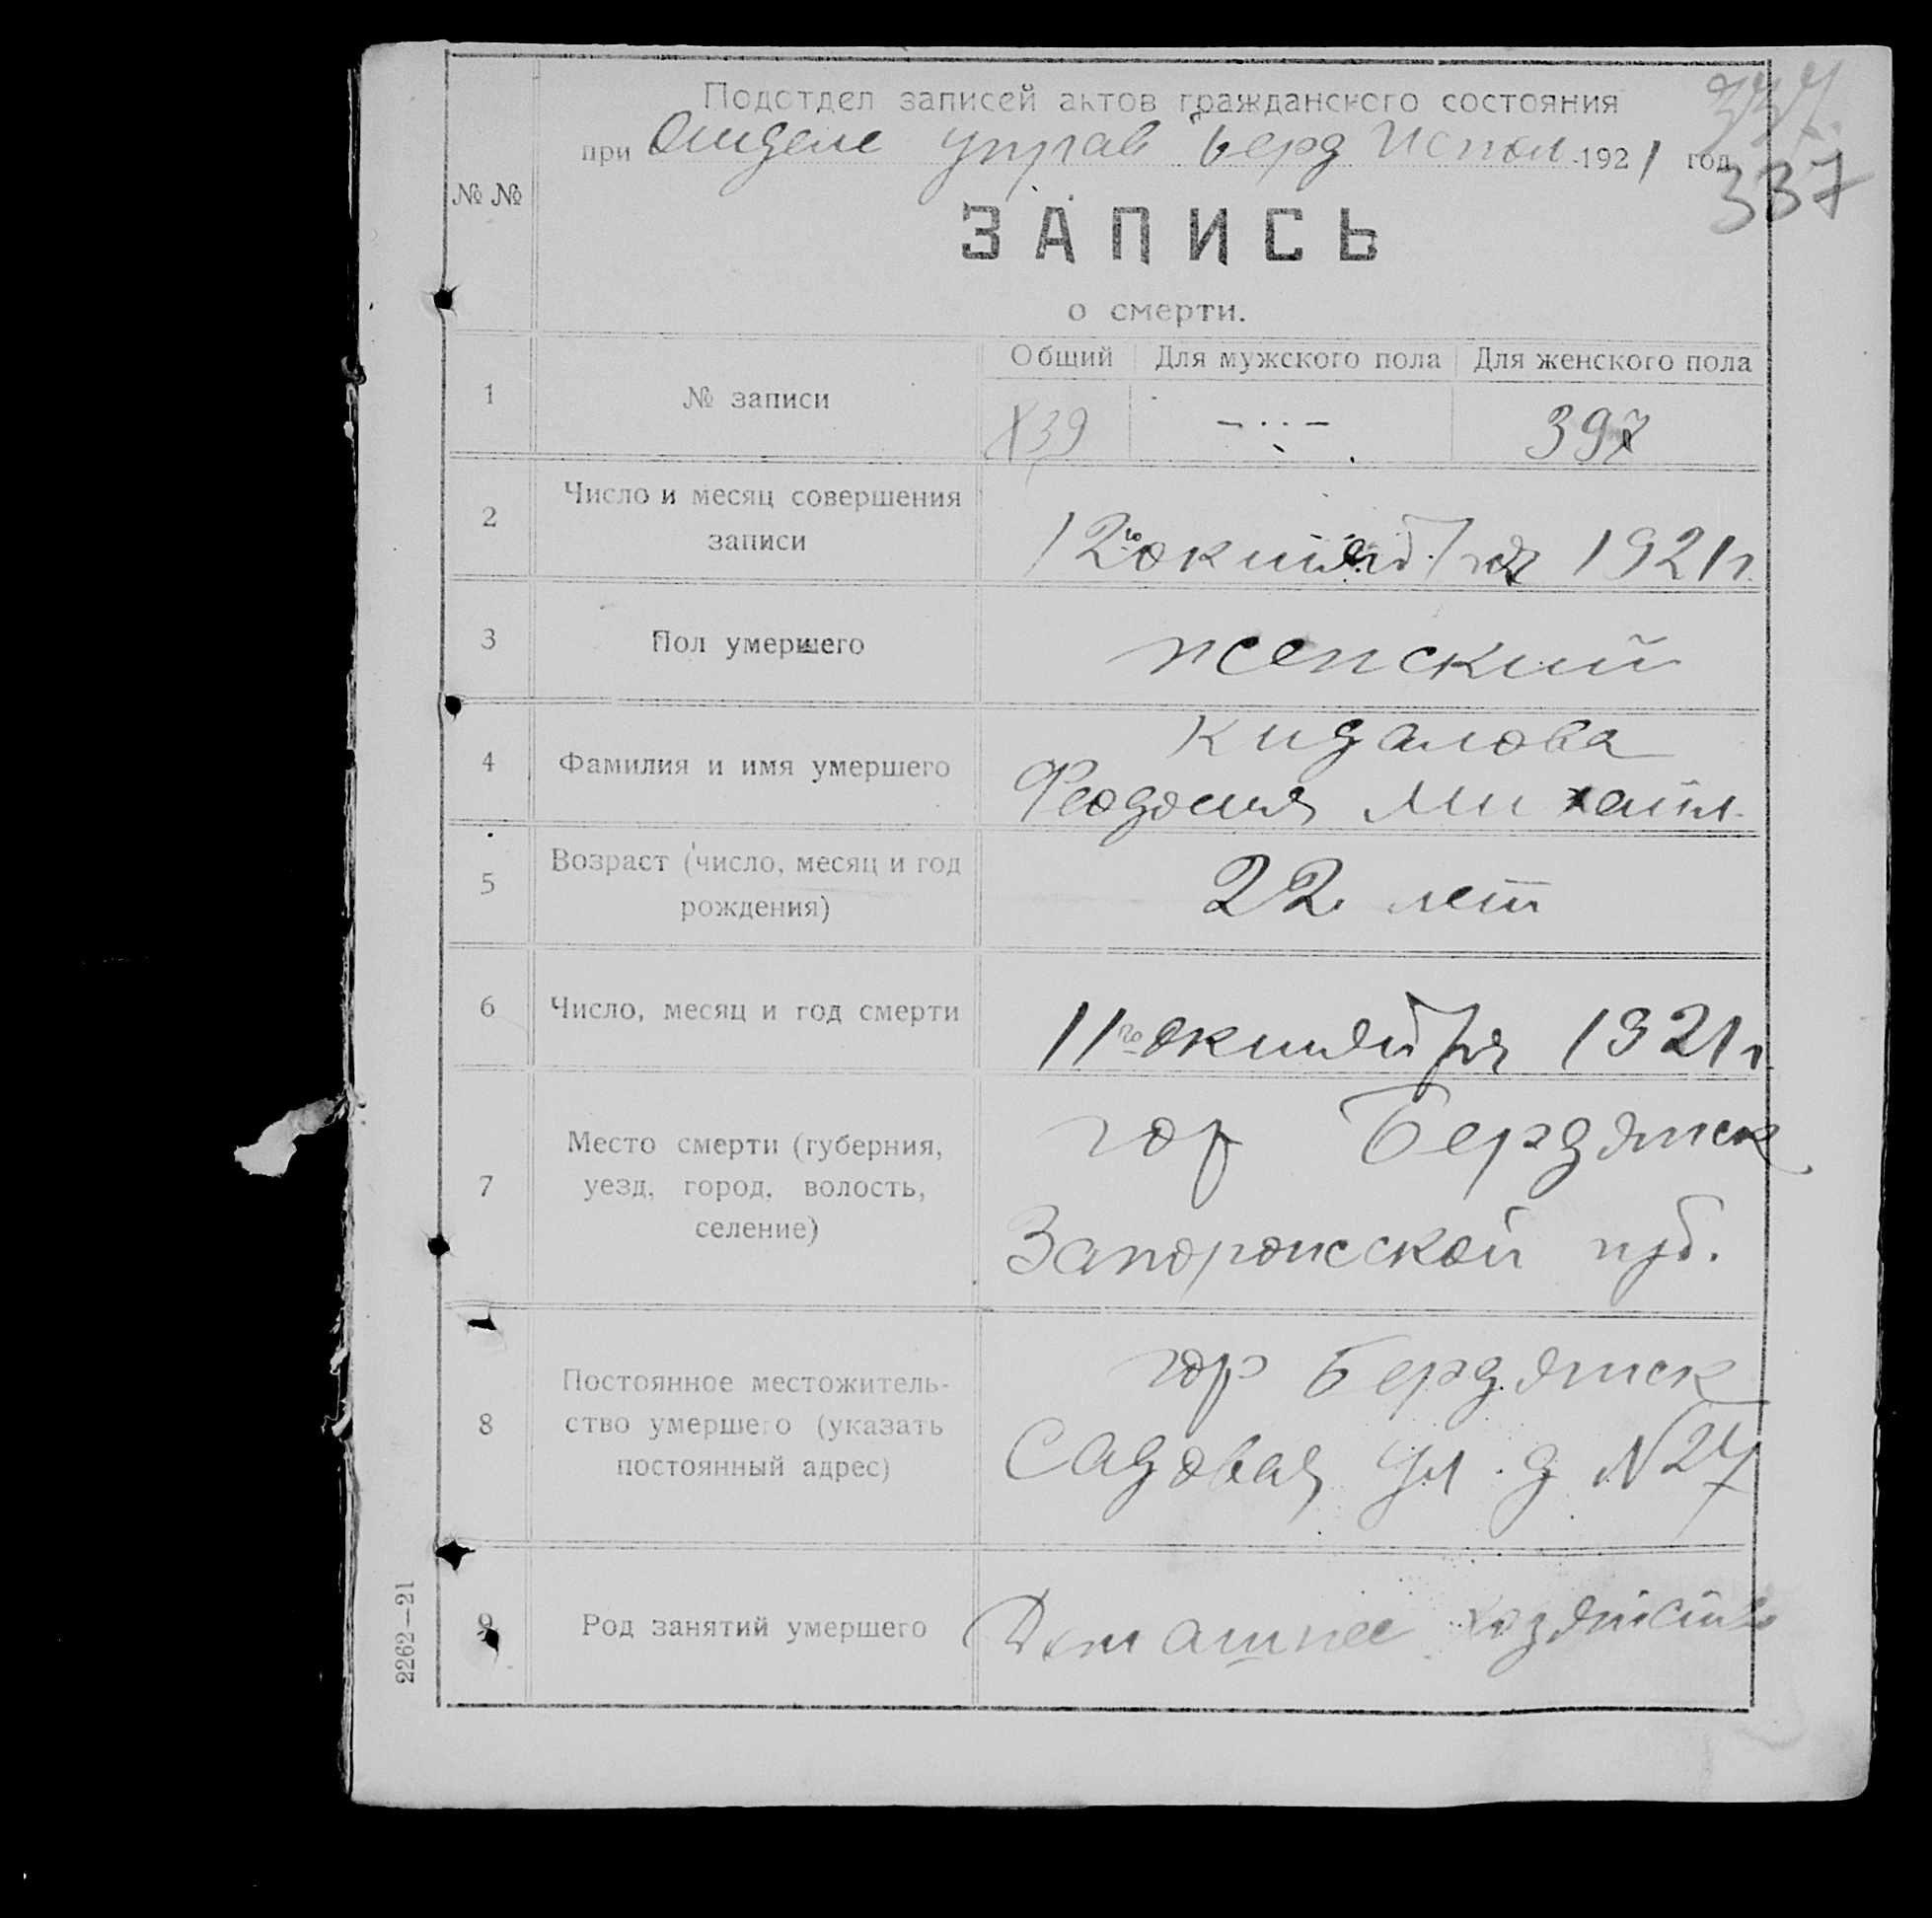 337
Подотдел записей актов гражданского состояния
при Отделе управ Берд Испол 1921 год
337
№ №
ЗАПИСЬ
о смерти.
1
№ записи
Общий
Для мужского пола
Для женского пола
839
397
2
Число и месяц совершения
записи
12го октября 1921 г.
3
Пол умершего
женский
4
Фамилия и имя умершего
Кидалова
Феодосия Михаил.
5
Возраст (число, месяц и год
рождения)
22 лет
6
Число, месяц и год смерти
11го октября 1921 г
7
Место смерти (губерния,
уезд, город, волость,
селение)
гор Бердянск
Запорожской губ.
8
Постоянное местожитель-
ство умершего (указать
постоянный адрес)
гор Бердянск
Садовая ул. д № 27
9
Род занятий умершего
Домашнее хозяйство
2262—21